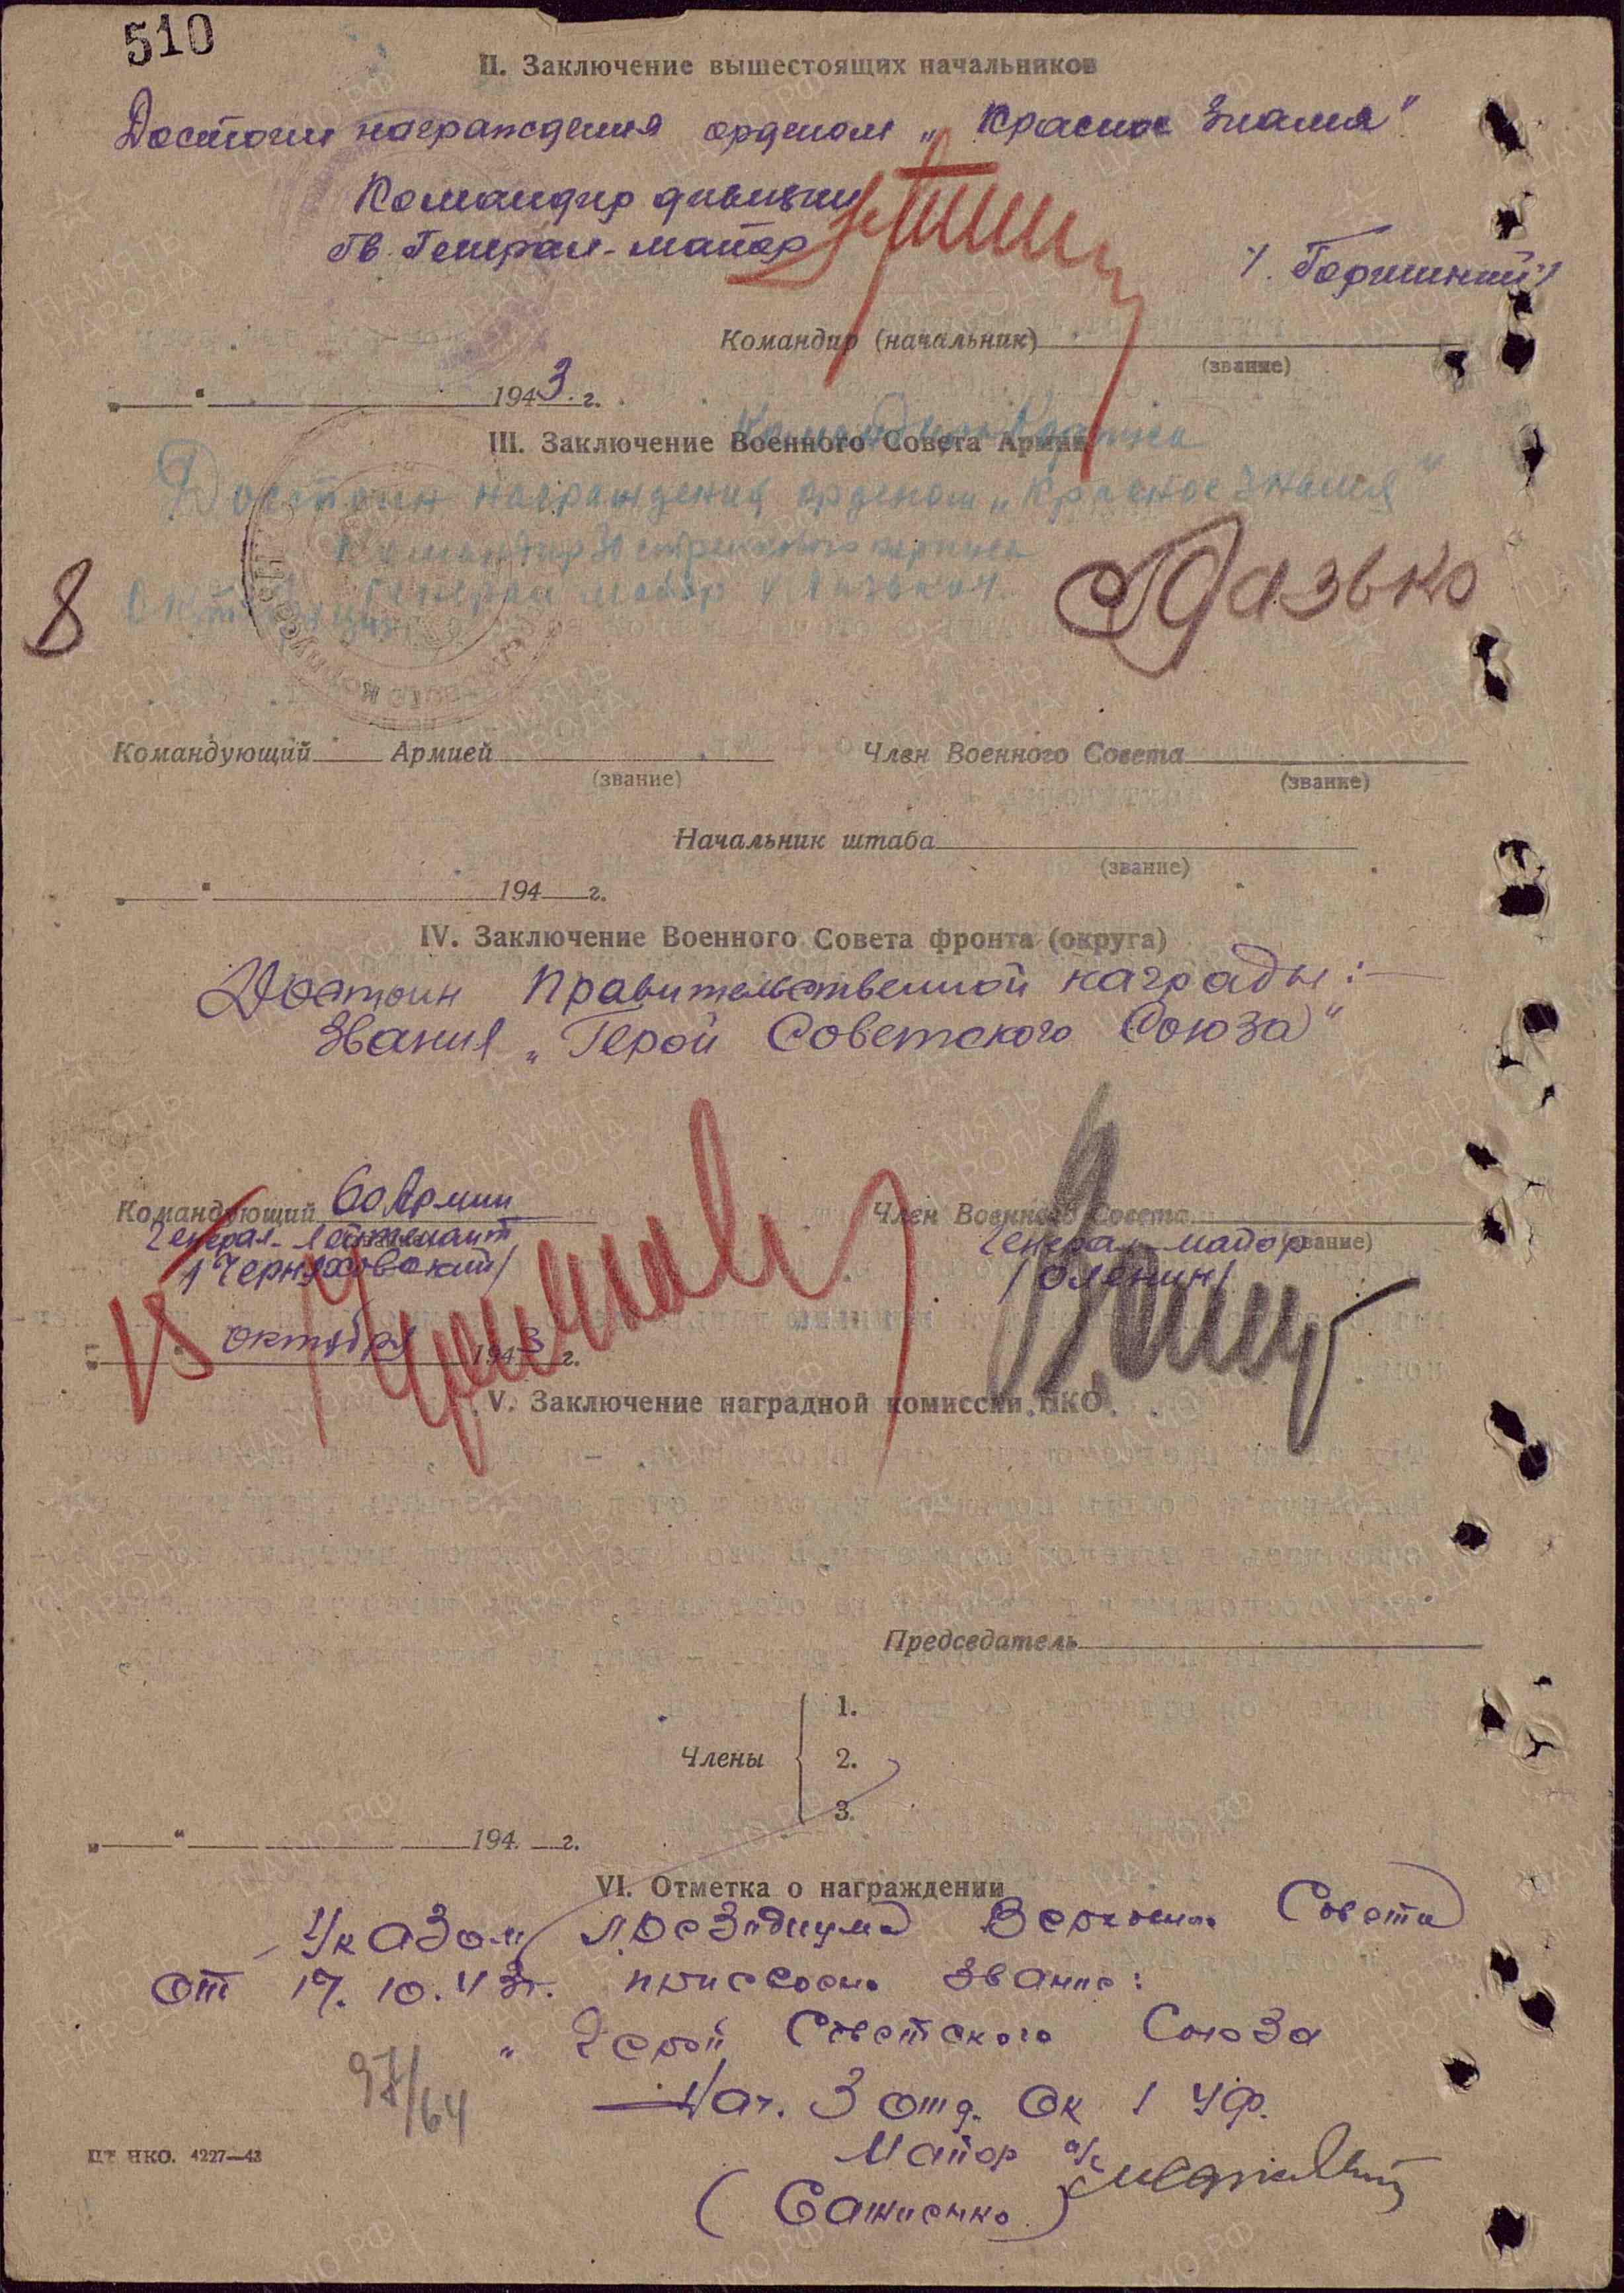 510
II. Заключение вышестоящих начальников
Достоин награждения орденом „Красное Знамя"
Командир дивизии
Гв. Генерал-майор
Командир (начальник)
(звание)
" " 1943 г.
Командир Корпуса
III. Заключение Военного Совета Армии
Достоин награждения орденом „Красное Знамя"
Командир 30 стрелкового корпуса
Генерал майор /Лазько/
8
Лазько
Командующий Армией Член Военного Совета
(звание) (звание)
Начальник штаба
(звание)
" " 194 г.
IV. Заключение Военного Совета фронта (округа)
Достоин Правительственной награды:—
Звания „Герой Советского Союза"
Командующий 60 Армии Член Военного Совета
Генерал-Лейтенант Генерал-майор (звание)
/Черняховский/ /Оленин/
15 октября 1943 г.
V. Заключение наградной комиссии НКО
Председатель
1.
Члены 2.
3.
" " 194. г.
VI. Отметка о награждении
Указом Президиума Верховно. Совета
от 17.10.43г. присвоено звание:
„Герой Советского Союза
Нач. 3 отд. ОК 1 УФ.
97/64
Майор а/с
ЦТ НКО. 4227—43